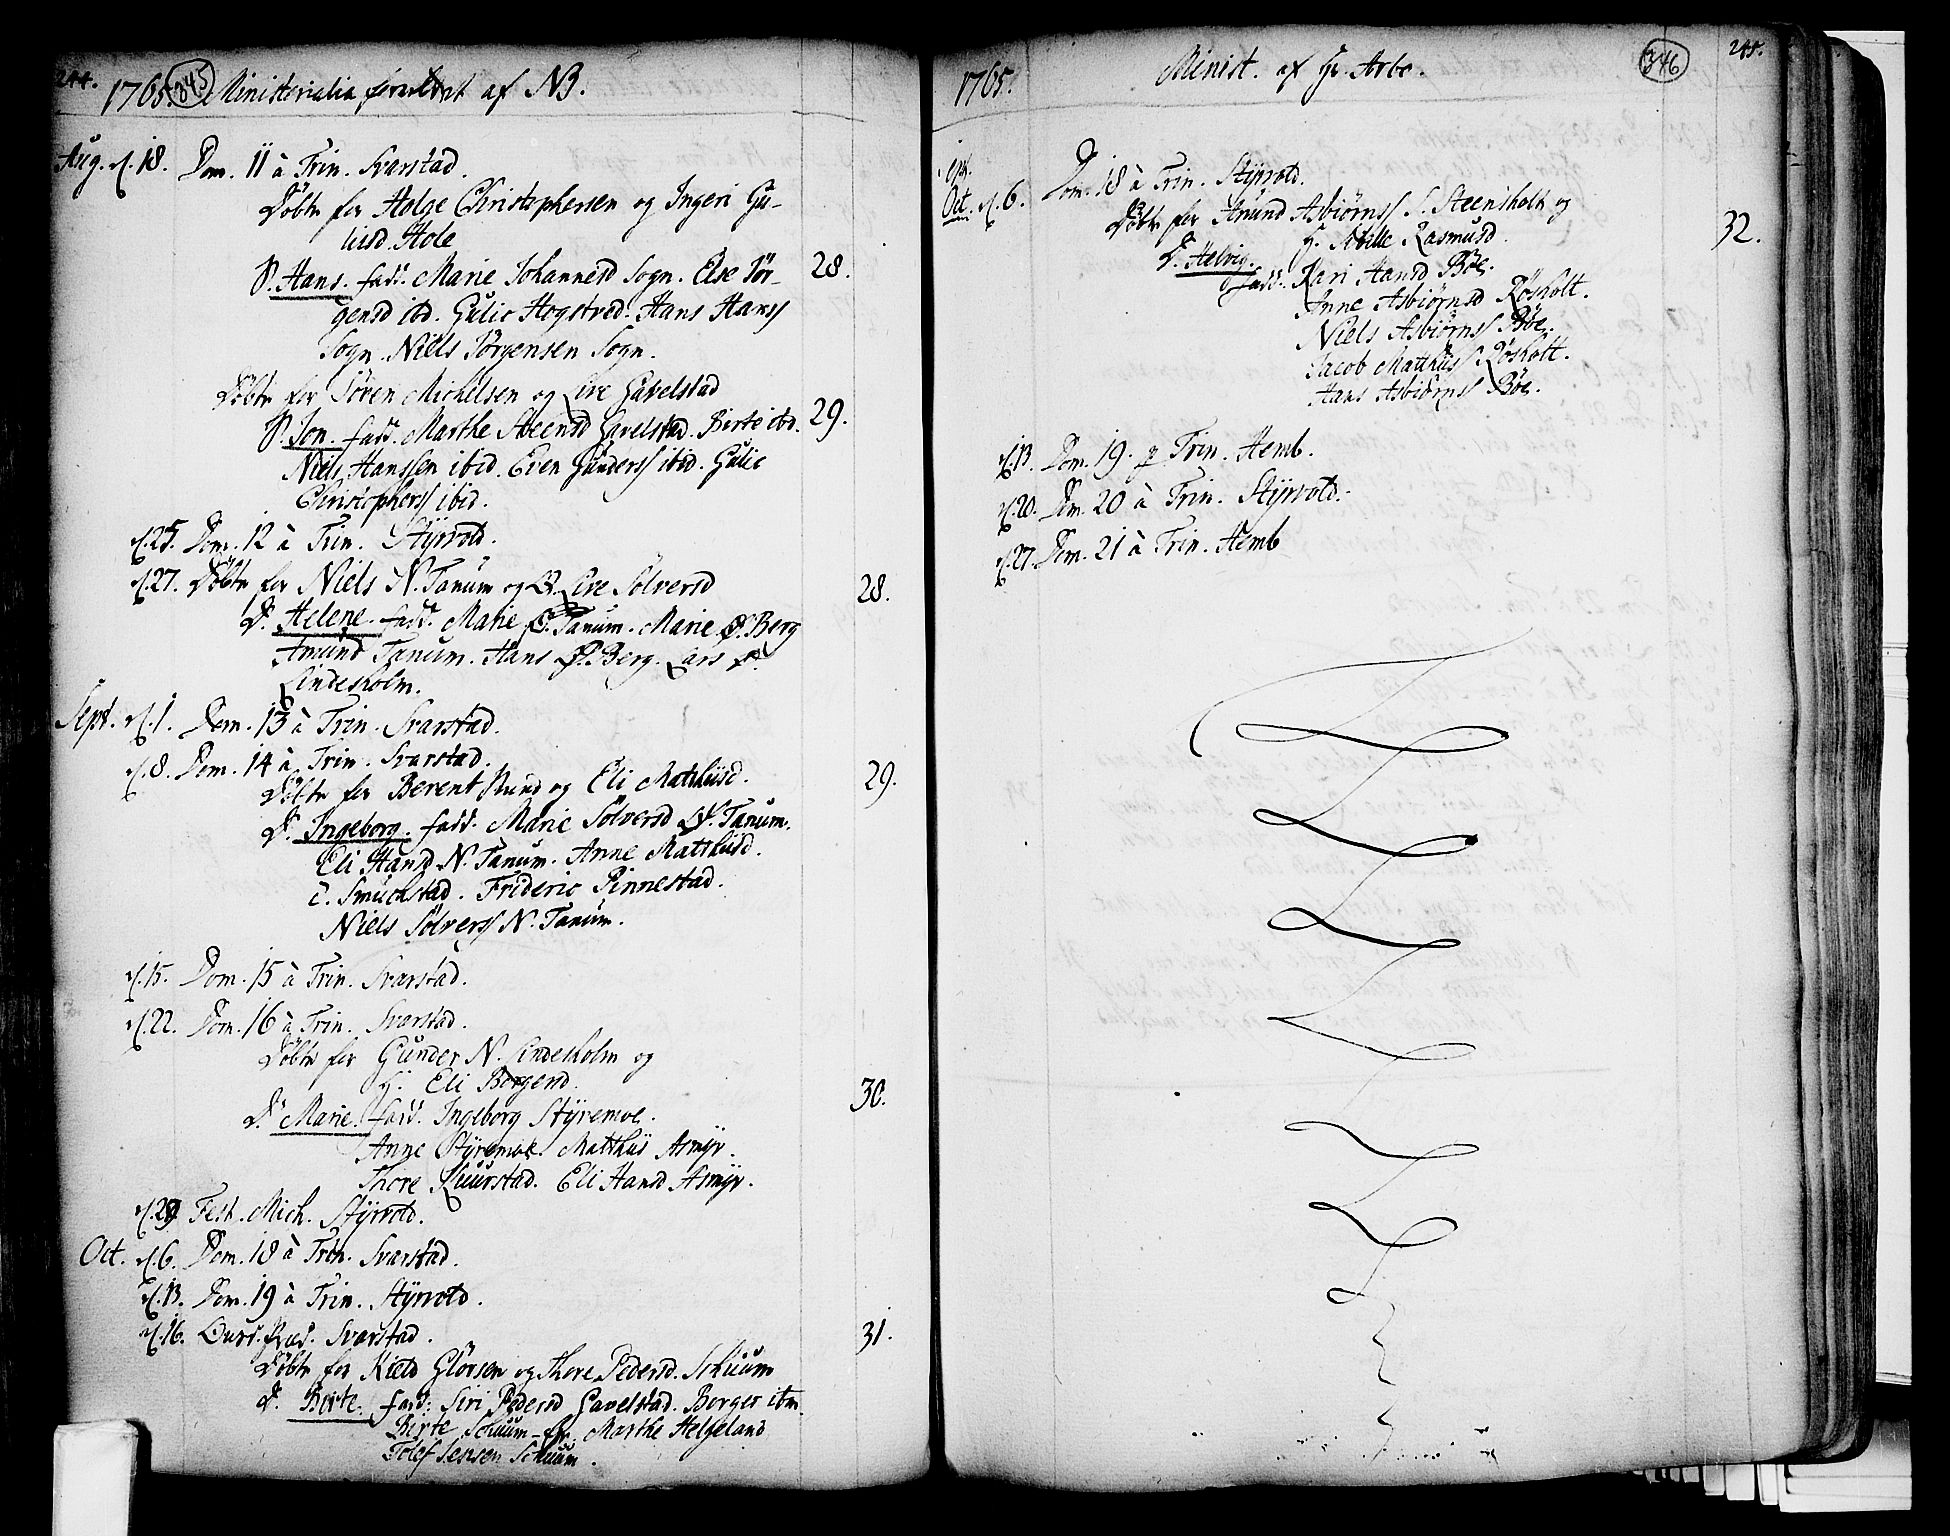 244.
1765. 345 Ministerialia forrettet af NB.
Aug. d. 18. Dom. 11 à Trin. Svarstad.
Döbt for Holge Christophersen og Ingeri Gu-
lisd. Hole
P. Hans. fadd. Marie Johannesd Sogn. Else Jör- 28.
gensd ibd. Gulic Hogstved. Hans Hanss
Sogn. Niels Jörgensen Sogn.
Döbt for Sören Michelsen og Live Gavelstad
P. Jon. fadd. Marthe Steensd Gavelstad. Birte ibd. 29.
Niels Hanssen ibid. Even Gunderss ibid. Gulic
Christopherss ibid.
d. 25. Dom. 12 à Trin. Styrvold.
d. 27. Döbt for Niels N. Tanum og Live Sölversd 28.
D. Helene. fadd. Marie Tanum. Marie Ø. Berg
Amund Tanum. Hans Ø. Berg. Lars
Lindesholm.
Sept. d. 1. Dom. 13 à Trin. Svarstad.
d. 8. Dom. 14 à Trin. Svarstad.
Döbt for Berent Rund og Eli Matthisd. 29.
D. Ingeborg. fadd. Marie Sölversd N. Tanum.
Eli Hansd N. Tanum. Anne Matthisd.
Smuchstad. Frideric Pinnestad.
Niels Sölverss N. Tanum.
d. 15. Dom. 15 à Trin. Svarstad.
d. 22. Dom. 16 à Trin. Svarstad.
Döbt for Gunder N. Lindesholm og
H. Eli Borgersd. 30.
D. Marie. fadd. Ingeborg Styremoe.
Anne Styremoe. Matthis Asmyr.
Thore Skuurstad. Eli Hansd Asmyr.
d. 29 Fest. Mich. Styrvold.
Oct. d. 6. Dom. 18 à Trin. Svarstad.
d. 13. Dom. 19 à Trin. Styrvold.
d. 16. Svarstad. 31.
Döbt for Kield Glövsen og Thore Pedersd. Schuum
D. Birte. fadd: Siri Pedersd Gavelstad. Borger ibm.
Birte Schuum. Marthe Helgeland
Tolef Jensen Schuum.
1765. Minist. af Hr. Arbo. 346 245.
Oct. d. 6. Dom. 18 à Trin. Styrvold.
Döbt for Amund Asbiörnss S. Steensholt og
H. Abille Rasmusd. 32.
D. Helvig.
fadd. Kari Hansd Böe.
Anne Asbiörnsd Rösholt.
Niels Asbiörnss Böe.
Jacob Matthiss Rösholt.
Hans Asbiörnss Böe.
d. 13. Dom. 19. p Trin. Hemb.
d. 20. Dom. 20 à Trin. Styrvold.
d. 27. Dom. 21 à Trin. Hemb